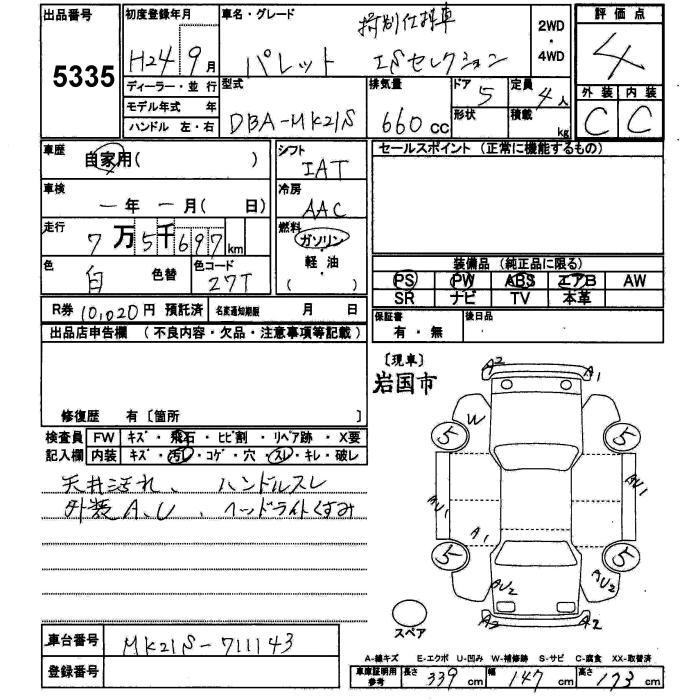 出品番号 初度登録年月 車名・グレード 特別仕様車 2WD・4WD 評価点
5335 H24 9月 パレット ISセレクション 4
ディーラー・並行 型式 排気量 ドア 定員 外装 内装
モデル年式 年 DBA-MK21S 660cc 5 4人 C C
ハンドル 左・右 形状 積載 kg
車歴 自家用( ) シフト IAT セールスポイント (正常に機能するもの)
車検 ー年 ー月( 日) 冷房 AAC
走行 7万5千697km 燃料 ガソリン・軽油 ( )
色 白 色替 色コード 27T 装備品 (純正品に限る)
PS PW ABS エアB AW
SR ナビ TV 本革
R券 10,020円 預託済 名変通知期限 月 日 保証書 有・無 後日品
出品店申告欄 (不良内容・欠品・注意事項等記載)
[現車] 岩国市
修復歴 有 [箇所 ]
検査員 FW キズ・飛石・ヒビ割・リペア跡・X要
記入欄 内装 キズ・汚レ・コゲ・穴・スレ・キレ・破レ
天井汚れ、ハンドルスレ
外装A、U、ヘッドライトくすみ
A2 A1
W
5 5
AU1 AU1
A1
5 5
AU2 AU2
A2 A2
スペア
車台番号 MK21S-711143
登録番号
A-線キズ E-エクボ U-凹み W-補修跡 S-サビ C-腐食 XX-取替済
車庫証明用参考 長さ 339cm 幅 147cm 高さ 173cm